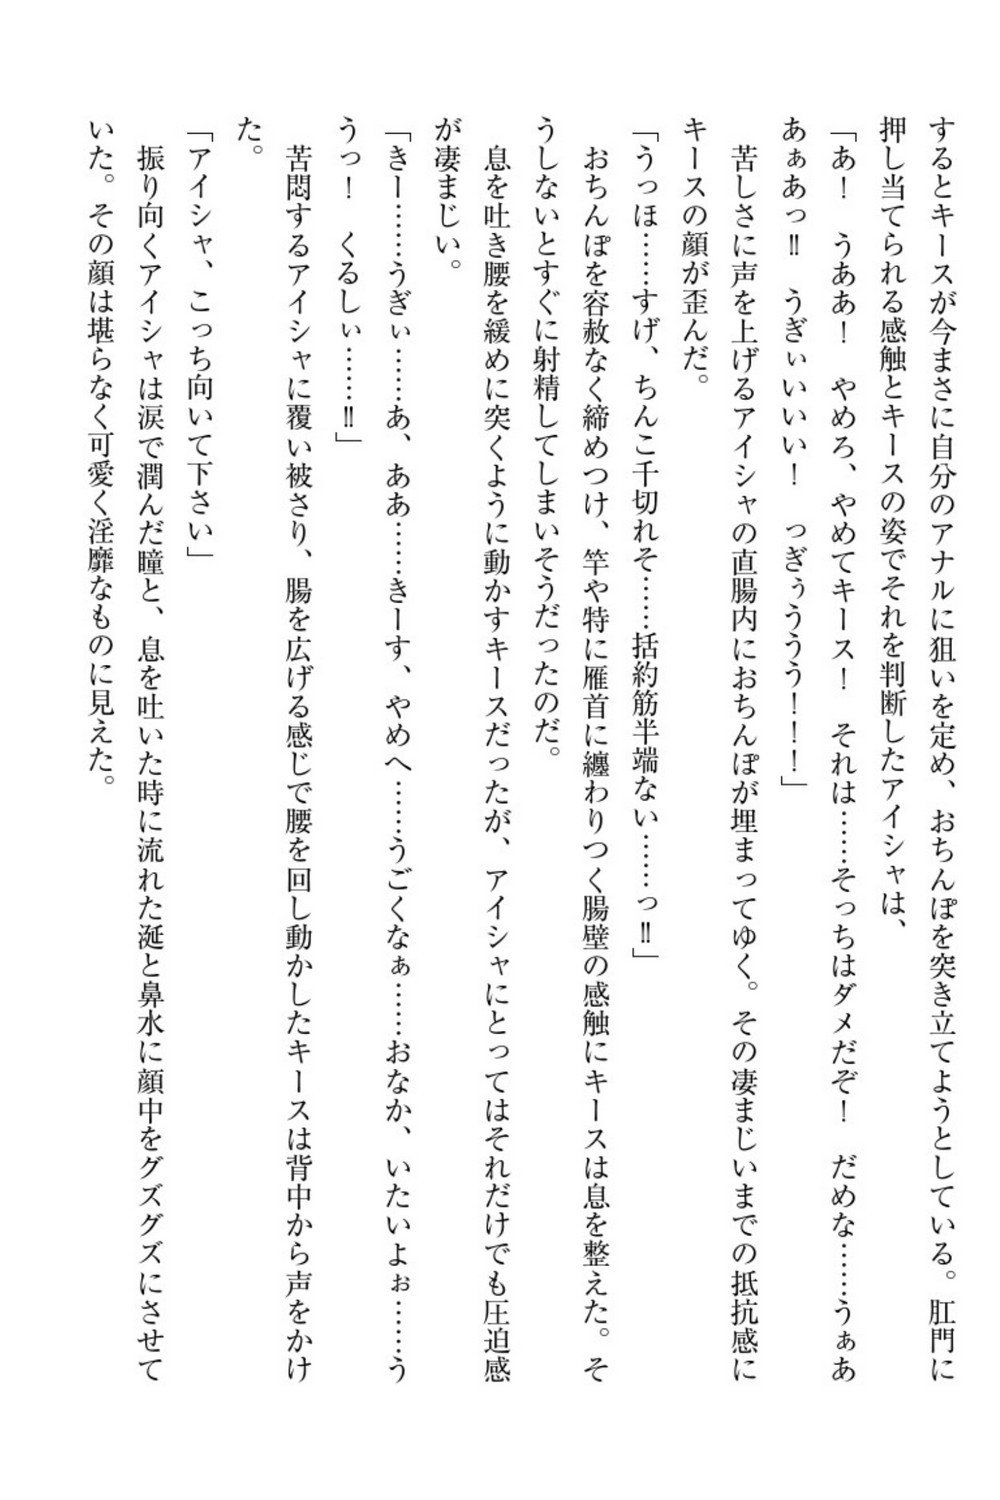 するとキースが今まさに自分のアナルに狙いを定め、おちんぽを突き立てようとしている。肛門に
押し当てられる感触とキースの姿でそれを判断したアイシャは、
「あ！　うああ！　やめろ、やめてキース！　それは……そっちはダメだぞ！　だめな……うぁあ
あぁあっ‼　うぎぃいいい！　っぎぅううう！！！」
苦しさに声を上げるアイシャの直腸内におちんぽが埋まってゆく。その凄まじいまでの抵抗感に
キースの顔が歪んだ。
「うっほ……すげ、ちんこ千切れそ……括約筋半端ない……っ‼」
おちんぽを容赦なく締めつけ、竿や特に雁首に纏わりつく腸壁の感触にキースは息を整えた。そ
うしないとすぐに射精してしまいそうだったのだ。
息を吐き腰を緩めに突くように動かすキースだったが、アイシャにとってはそれだけでも圧迫感
が凄まじい。
「きー……うぎぃ……あ、ああ……きーす、やめへ……うごくなぁ……おなか、いたいよぉ……う
うっ！　くるしぃ……‼」
苦悶するアイシャに覆い被さり、腸を広げる感じで腰を回し動かしたキースは背中から声をかけ
た。
「アイシャ、こっち向いて下さい」
振り向くアイシャは涙で潤んだ瞳と、息を吐いた時に流れた涎と鼻水に顔中をグズグズにさせて
いた。その顔は堪らなく可愛く淫靡なものに見えた。